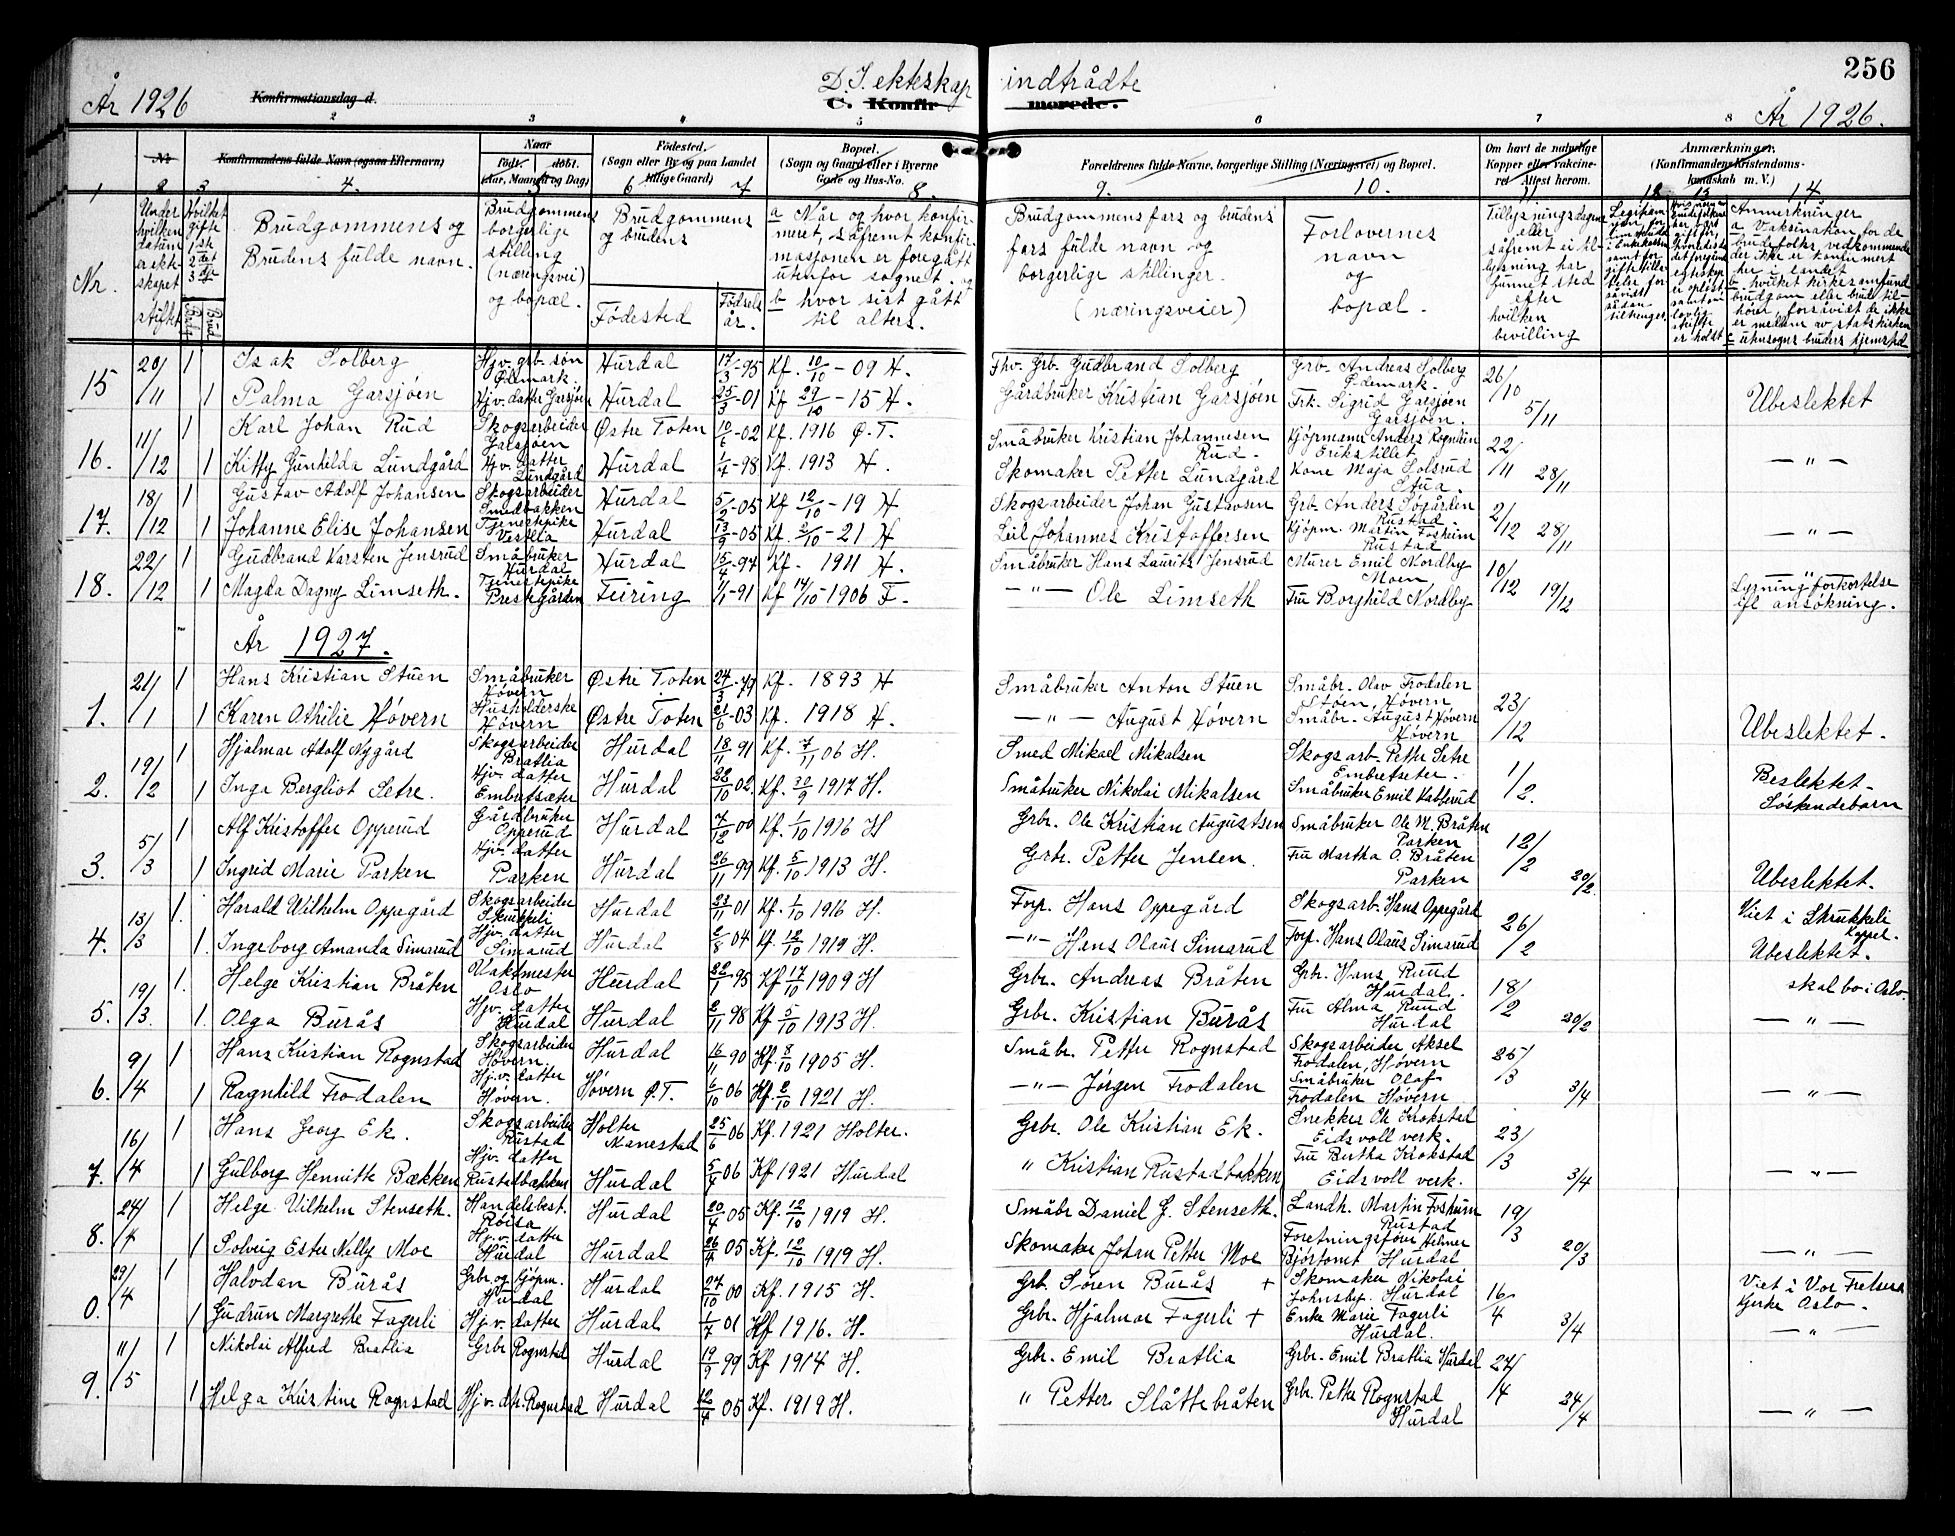 256
År 1926
Konfirmationsdag d.
D. I ekteskap indtrådte
C. Konfirmerede.
År 1926.
2 3 4 5 6 7 8
No.
Konfirmandens fulde Navn (ogsaa Efternavn)
Naar
født. døbt.
(Aar, Maaned og Dag)
Fødested.
(Sogn eller By og paa Landet tillige Gaard)
Bopæl.
(Sogn og Gaard eller i Byerne Gade og Hus-No.
Forældrenes fulde Navne, borgerlige Stilling (Næringsvei) og Bopæl.
Om havt de naturlige Kopper eller vakcineret Attest herom.
Anmærkninger.
(Konfirmandens Kristendomskundskab m. V.)
1 2 3 4. 5 6 7 8. 9. 10. 11 12 13 14
Nr.
Under hvilken datum er ekteskapet stiftet
Hvilket gifte 1ste 2det 3dje
Brudg. Brud
Brudgommens og Brudens fulde navn.
Brudgommens borgerlige stilling (næringsvei) og bopæl.
Brudgommens og brudens
Fødested
Fødselsår.
a Når og hvor konfirmeret, såfremt konfirmasjonen er foregått utenfor sognet. og
b hvor sist gått til alters.
Brudgommens fars og brudens fars fulde navn og borgerlige stillinger. (næringsveier)
Forlovernes navn og bopæl.
Tillysningsdagene eller såfremt ei tillysning har funnet sted efter hvilken bevilling
Anmerkninger
a Vaksinakon for de brudefolks vedkommende der ikke er konfirmert her i landet
b hvilket kirkesamfund brudgom eller brud tilhører, forsåvidt de ikke er medlem av statskirken
c utensogns bruders hjemsted
15 20/11 1 Isak Solberg Hjv. grb. søn Ødemark. Hurdal 17/3-95 Kf. 10/10-09 H. Fhv. Grb. Gudbrand Solberg Grb. Andreas Solberg Ødemark. 26/10
1 Palma Garsjøen Hjv. datter Garsjøen Hurdal 25/3-01 Kf 29/10-15 H. Gårdbruker Kristian Garsjøen Frk. Sigrid Garsjøen Garsjøen. 5/11 Ubeslektet
16. 11/12 1 Karl Johan Rud Skogsarbeider Garsjøen Østre Toten 10/6-02 Kf. 1916 Ø.T. Småbruker Kristian Johannesen Rud. Kjøpmann Anders Rognlien Erikstillet 22/11
1 Kitty Gunhilda Lundgård Hjv. datter Lundgård Hurdal 1/4-98 Kf. 1913 H. Skomaker Petter Lundgård Kone Maja Solsrud Stua. 28/11 — " —
17. 18/12 1 Gustav Adolf Johansen Skogsarbeider Smedbakken Hurdal 5/2-05 Kf 12/10-19 H Skogsarbeider Johan Gustavsen Grb. Anders Søgården Rustad 2/12
1 Johanne Elise Johansen Tjenestepike Vestlia Hurdal 13/9-05 Kf. 2/10-21 H Leil. Johannes Kristoffersen Kjøpm. Martin Fosheim Rustad 28/11 — " —
18. 22/12 1 Gudbrand Karsten Jensrud Småbruker Hurdal Hurdal 15/4-94 Kf. 1911 H. Småbruker Hans Laurits Jensrud Murer Emil Nordby Moen 10/12
1 Magda Dagny Limseth. Tjenestepike Prestgården Feiring 1/1-91 Kf 14/10-1906 F. — " — Ole Limseth Fru Borghild Nordby 19/12 Lysning forkortelse ifl ansøkning.
År 1927.
1. 21/1 1 Hans Kristian Stuen Småbruker Høvern Østre Toten 24/3-79 Kf. 1893 H Småbruker Anton Stuen Småbr. Olav Frodalen Støen, Høvern 23/12
1 Karen Othilie Høvern Husholderske Høvern Østre Toten 21/6-03 Kf. 1918 H. — " — August Høvern Småbr. August Høvern Høvern Ubeslektet.
2. 19/2 1 Hjalmar Adolf Nygård Skogsarbeider Bratlia Hurdal 18/11 91 Kf. 7/11 06 H. Smed Mikael Mikalsen Skogsarb. Petter Setre Embretseter. 1/2.
1 Inga Bergliot Setre. Hjv. datter Embretsæter Hurdal 22/10 02. Kf. 30/9 1917 H. Småbruker Nikolai Mikalsen Småbruker Emil Katterud Beslektet - Søskendebarn
3. 5/3 1 Alf Kristoffer Opperud Gårdbruker Opperud Hurdal 7/12 00 Kf. 1/10 1916 H Grbr. Ole Kristian Augustsen Småbruker Ole M. Bråten Parken 12/2
1 Ingrid Marie Parken Hjv. datter Parken Hurdal 26/11 99 Kf. 5/10 1913 H. Grbr. Petter Jensen. Fru Martha O. Bråten Parken 20/2. Ubeslektet.
4. 13/3 1. Harald Wilhelm Oppegård Skogsarbeider Skrukkeli Hurdal 23/11 01 Kf. 1/10 1916 H. Forp. Hans Oppegård Skogsarb. Hans Oppegård 26/2 Viet i Skrukkeli Kappel.
1. Ingeborg Amanda Simarud Hjv. datter Simarud Hurdal 2/8 04 Kf. 12/10 1919 H. — " — Hans Olaus Simarud Forp. Hans Olaus Simarud Ubeslektet.
5. 19/3. 1. Helge Kristian Bråten Vaktmester Oslo Hurdal 22/1 95 Kf 17/10 1909 H Grbr. Andreas Bråten Grbr. Hans Ruud Hurdal. 18/2 skal bo i Oslo.
1. Olga Burås Hjv. datter Hurdal Hurdal 2/11 98 Kf 5/10 1913 H. Grbr. Kristian Burås Fru Alma Ruud Hurdal 20/2 — " —
6. 9/4 1 Hans Kristian Rognstad Skogsarbeider Høvern. Hurdal 16/11 90 Kf. 8/10 1905 H. Småbr. Petter Rognstad Skogsarbeider Aksel Frodalen, Høvern 25/3
1 Ragnhild Frodalen Hjv. datter Høvern. Høvern Ø.T. 6/10 06 Kf. 2/10 1921 H. — " — Jørgen Frodalen Småbruker Olaf Frodalen Høvern 3/4 — " —
7. 16/4 1 Hans Georg Ek. Skogsarbeider Rustad Holter Nanestad 25/6 06 Kf. 1921 Holter. Grbr. Ole Kristian Ek. Snekker Ole Krokstad Eidsvoll verk. 23/3
1 Gulborg Henritte Bækken Hjv. datter Rustadbækken Hurdal 5/4 06 Kf 1921 Hurdal " Kristian Rustadbakken Fru Bertha Krokstad Eidsvoll verk. 3/4 — " —
8. 24/4 1 Helge Vilhelm Stenseth. Handelsbest. Røisa Hurdal 20/4 05 Kf. 12/10 1919 H. Småbr Daniel G. Stenseth. Landh. Martin Fosheim Rustad 19/3
1 Solveig Ester Nelly Moe Hjv. datter Hurdal Hurdal 26/4 05 Kf. 12/10 1919 H. Skomaker Johan Petter Moe Foretningsfører Helmer Bjørtomt Hurdal 20/3 — " —
0. 29/4 1 Halvdan Burås Grbr og kjøpm. Hurdal Hurdal 27/10 00 Kf. 1915 H. Grb. Søren Burås + Skomaker Nikolai Johnsby. Hurdal 16/4 Viet i Vor Frelsers Kjirke Oslo.
1 Gudrun Margrethe Fagerli Hjv. datter Hurdal 1/7 01 Kf 1916. H. Grbr. Hjalmar Fagerli + Enke Marie Fagerli Hurdal. 3/4 — " —
9. 11/5 1 Nikolai Alfred Bratlia Grbr Rognstad Hurdal 19/9 99 Kf 1914 H. Grbr. Emil Bratlia Grbr. Emil Bratlia Hurdal 24/4
1 Helga Kristine Rognstad Hjv. dtr. Rognstad Hurdal 12/4 05 Kf. 1919 H. " Petter Slåttebråten Grb. Petter Rognstad Hurdal 24/4 — " —